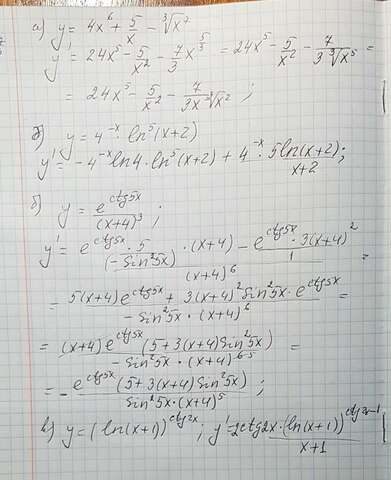 а) y = 4x⁶ + 5/x - ∛x⁷
y' = 24x⁵ - 5/x² - 7/3 x^(5/3) = 24x⁵ - 5/x² - 7/(3 ∛x⁵) =
= 24x⁵ - 5/x² - 7/(3x ∛x²) ;
б) y = 4^(-x) · ln⁵(x+2)
y' = -4^(-x) ln4 · ln⁵(x+2) + 4^(-x) · 5ln(x+2)/(x+2) ;
б) y = e^(ctg5x)/(x+4)³ ;
y' = (e^(ctg5x) · 5/(-Sin²5x) · (x+4) - e^(ctg5x)/1 · 3(x+4)²)/(x+4)⁶ =
= (5(x+4)e^(ctg5x) + 3(x+4)² Sin²5x · e^(ctg5x))/(-Sin²5x · (x+4)⁶) =
= ((x+4)e^(ctg5x) (5+3(x+4)Sin²5x))/(-Sin²5x · (x+4)^(6 5)) =
= - (e^(ctg5x) (5+3(x+4)Sin²5x))/(Sin²5x · (x+4)⁵) ;
в) y = (ln(x+1))^(ctg2x) ; y' = 2ctg2x · (ln(x+1))^(ctg2x-1)/(x+1)